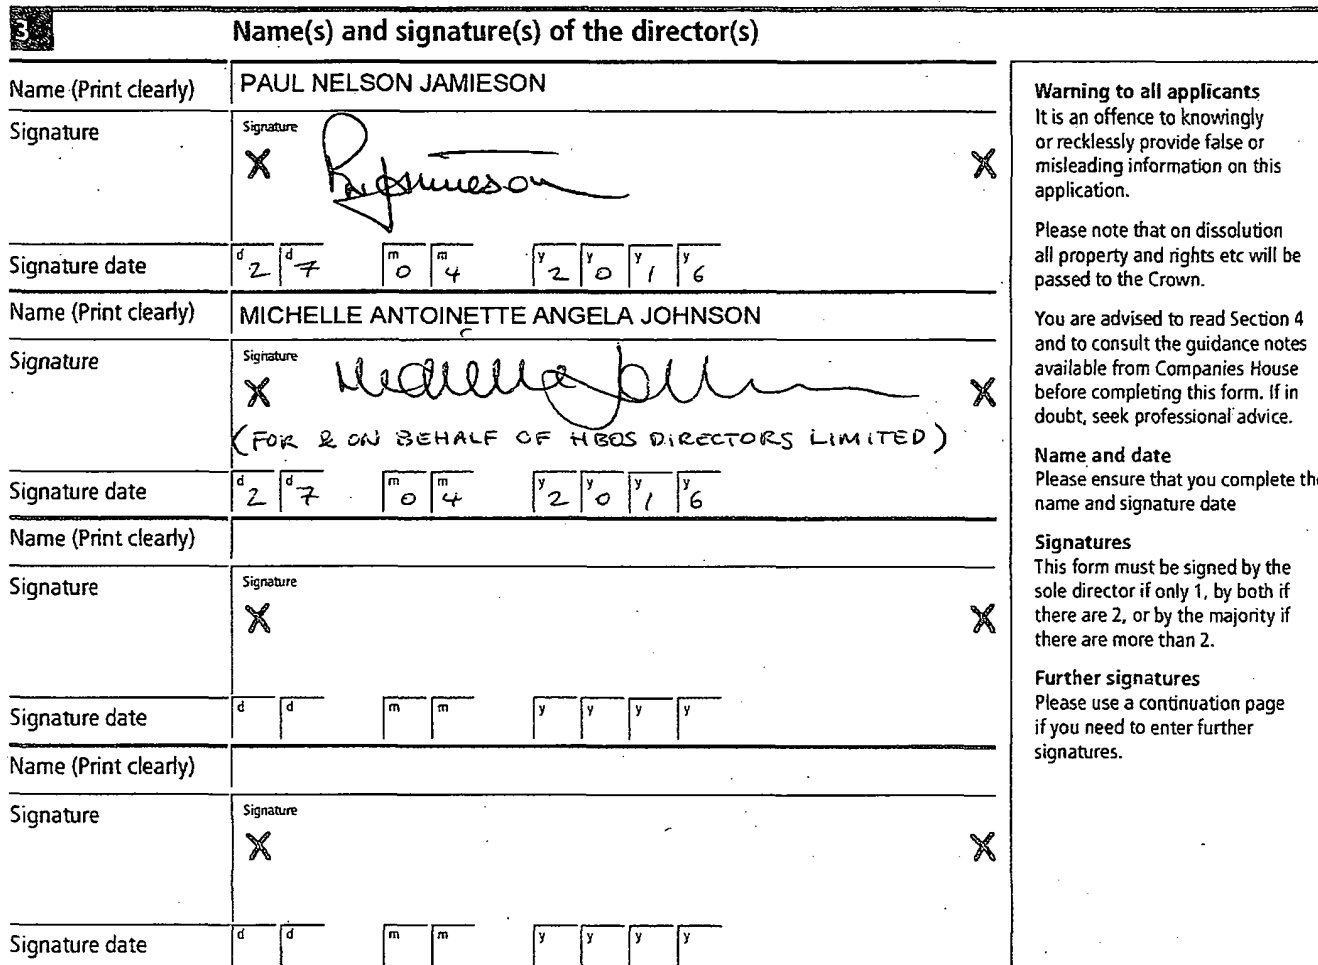 3 Name(s) and signature(s) of the director(s)
Name (Print clearly) PAUL NELSON JAMIESON
Signature
Signature
X PNJamieson X
Signature date d 2 d 7 m 0 m 4 y 2 y 0 y 1 y 6
Name (Print clearly) MICHELLE ANTOINETTE ANGELA JOHNSON
Signature
Signature
X Michelle Johnson X
(FOR & ON BEHALF OF HBOS DIRECTORS LIMITED)
Signature date d 2 d 7 m 0 m 4 y 2 y 0 y 1 y 6
Name (Print clearly)
Signature
Signature
X X
Signature date d d m m y y y y
Name (Print clearly)
Signature
Signature
X X
Signature date d d m m y y y y
Warning to all applicants
It is an offence to knowingly
or recklessly provide false or
misleading information on this
application.
Please note that on dissolution
all property and rights etc will be
passed to the Crown.
You are advised to read Section 4
and to consult the guidance notes
available from Companies House
before completing this form. If in
doubt, seek professional advice.
Name and date
Please ensure that you complete the
name and signature date
Signatures
This form must be signed by the
sole director if only 1, by both if
there are 2, or by the majority if
there are more than 2.
Further signatures
Please use a continuation page
if you need to enter further
signatures.